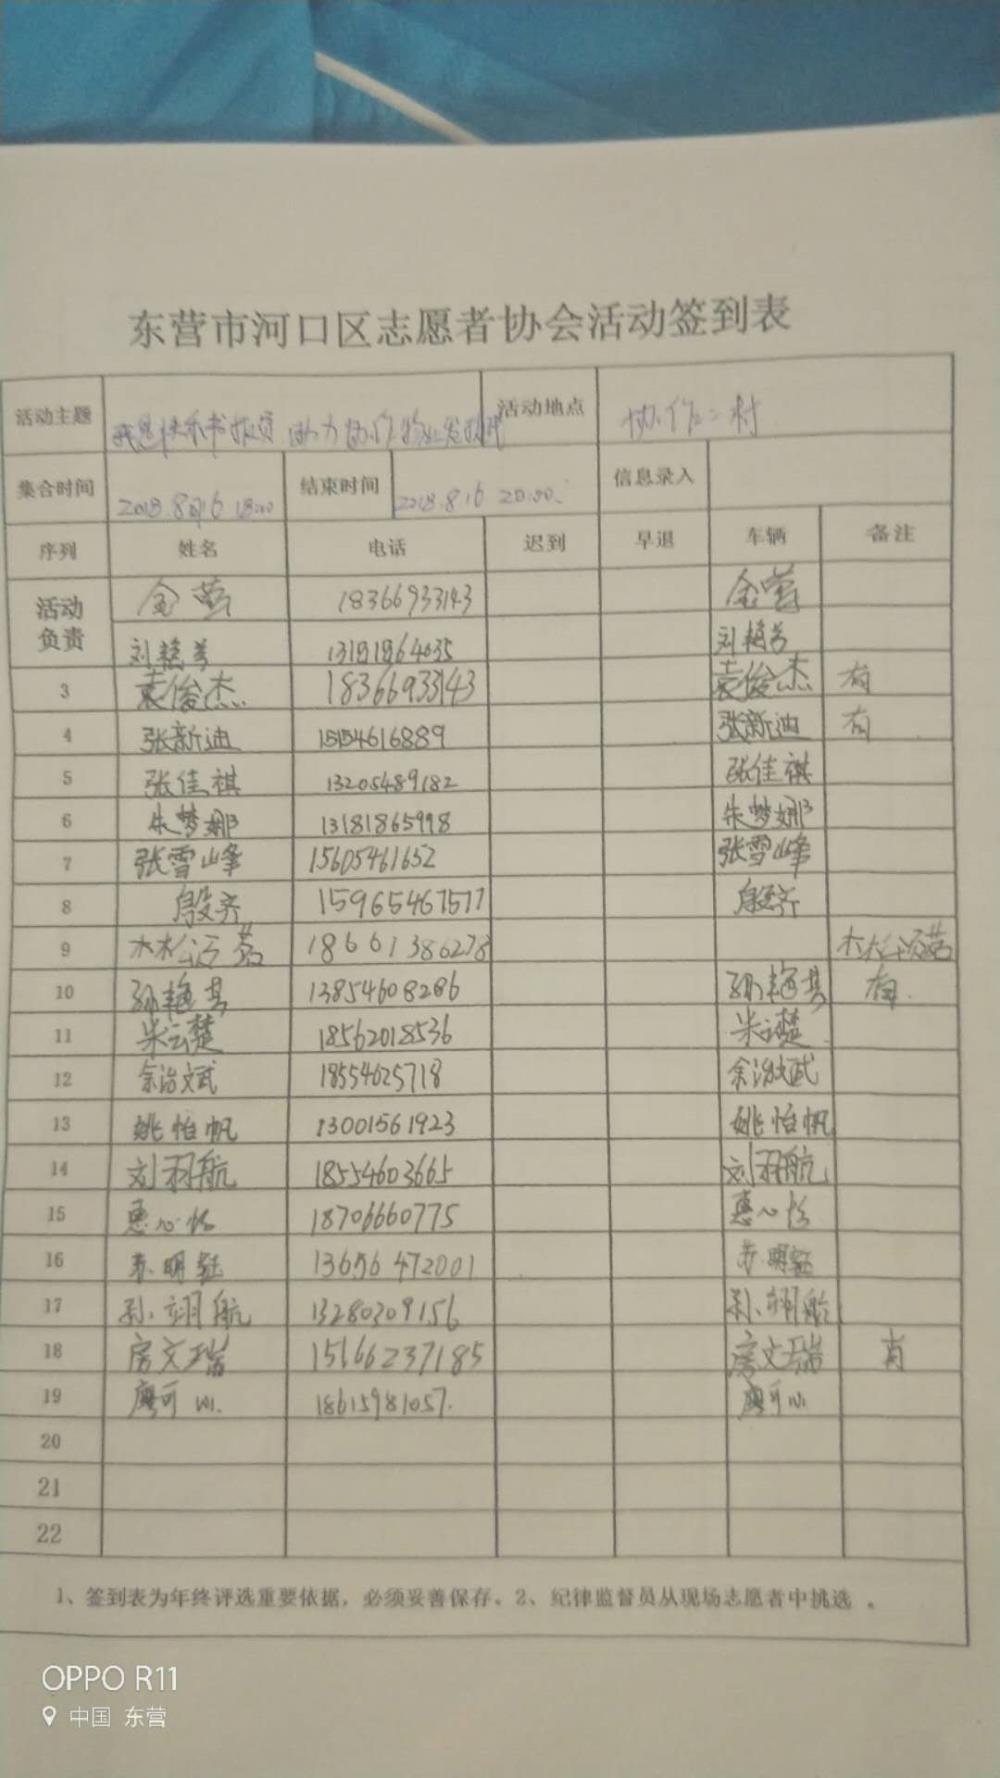 东营市河口区志愿者协会活动签到表
活动主题 我是快乐书报员 助力协作物业发报纸 活动地点 协作二村
集合时间 2018.8月16 18:00 结束时间 2018.8.16 20:00. 信息录入
序列 姓名 电话 迟到 早退 车辆 备注
活动负责 金莹 18366933143 金莹
刘艳芳 13181864035 刘艳芳
3 袁俊杰 18366933143 袁俊杰 有
4 张新迪 15154616889 张新迪 有
5 张佳祺 13205489182 张佳祺
6 朱梦娜 13181865998 朱梦娜
7 张雪峰 15605461652 张雪峰
8 殷齐 15965467577 殷齐
9 18661386278
10 孙艳其 13854608286 孙艳其 有.
11 朱云楚 18562018536 朱云楚
12 余治斌 18554625718 余治斌
13 姚怡帆 13001561923 姚怡帆
14 刘羽航 18554603665 刘羽航
15 惠心怡 18706660775 惠心怡
16 苏明钰 13656472001 苏明钰
17 孙翊航 13280309156 孙翊航
18 房文瑞 15166237185 房文瑞 有
19 廖可心. 18615981057. 廖可心
20
21
22
1、签到表为年终评选重要依据，必须妥善保存。2、纪律监督员从现场志愿者中挑选 。
OPPO R11
中国 东营